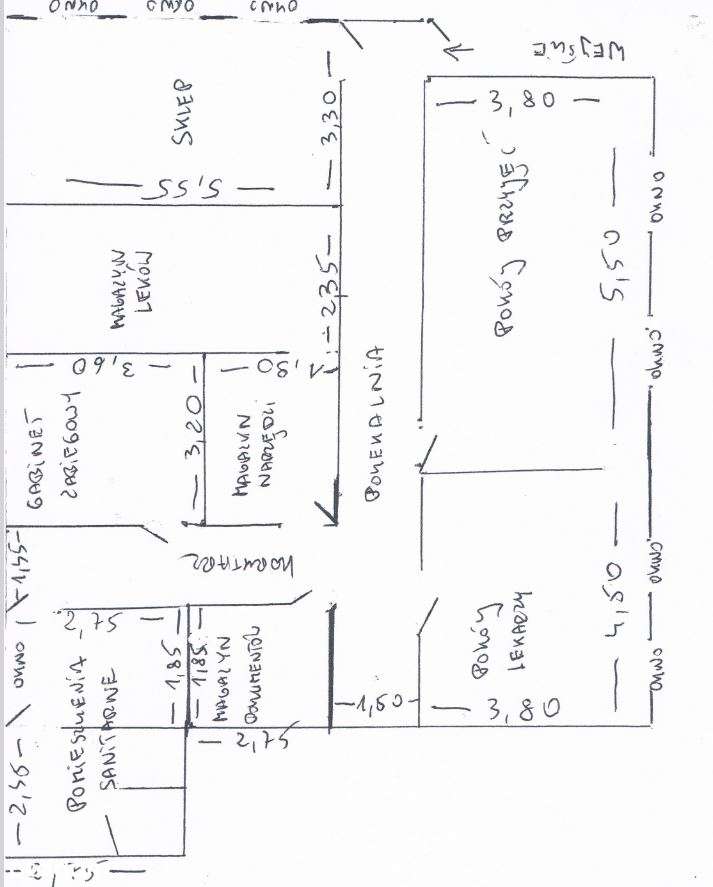 OKNO
OKNO
OKNO
WEJŚCIE
SKLEP
3,30
5,55
3,80
POKÓJ PRZYJĘĆ
5,50
OKNO
OKNO
MAGAZYN
LEKÓW
2,35
3,60
1,80
GABINET
ZABIEGOWY
3,20
MAGAZYN
NARZĘDZI
POCZEKALNIA
KORYTARZ
1,55
OKNO
2,75
1,85
1,85
MAGAZYN
DOKUMENTÓW
2,75
1,50
POKÓJ
LEKARZY
4,50
3,80
OKNO
OKNO
POMIESZCZENIA
SANITARNE